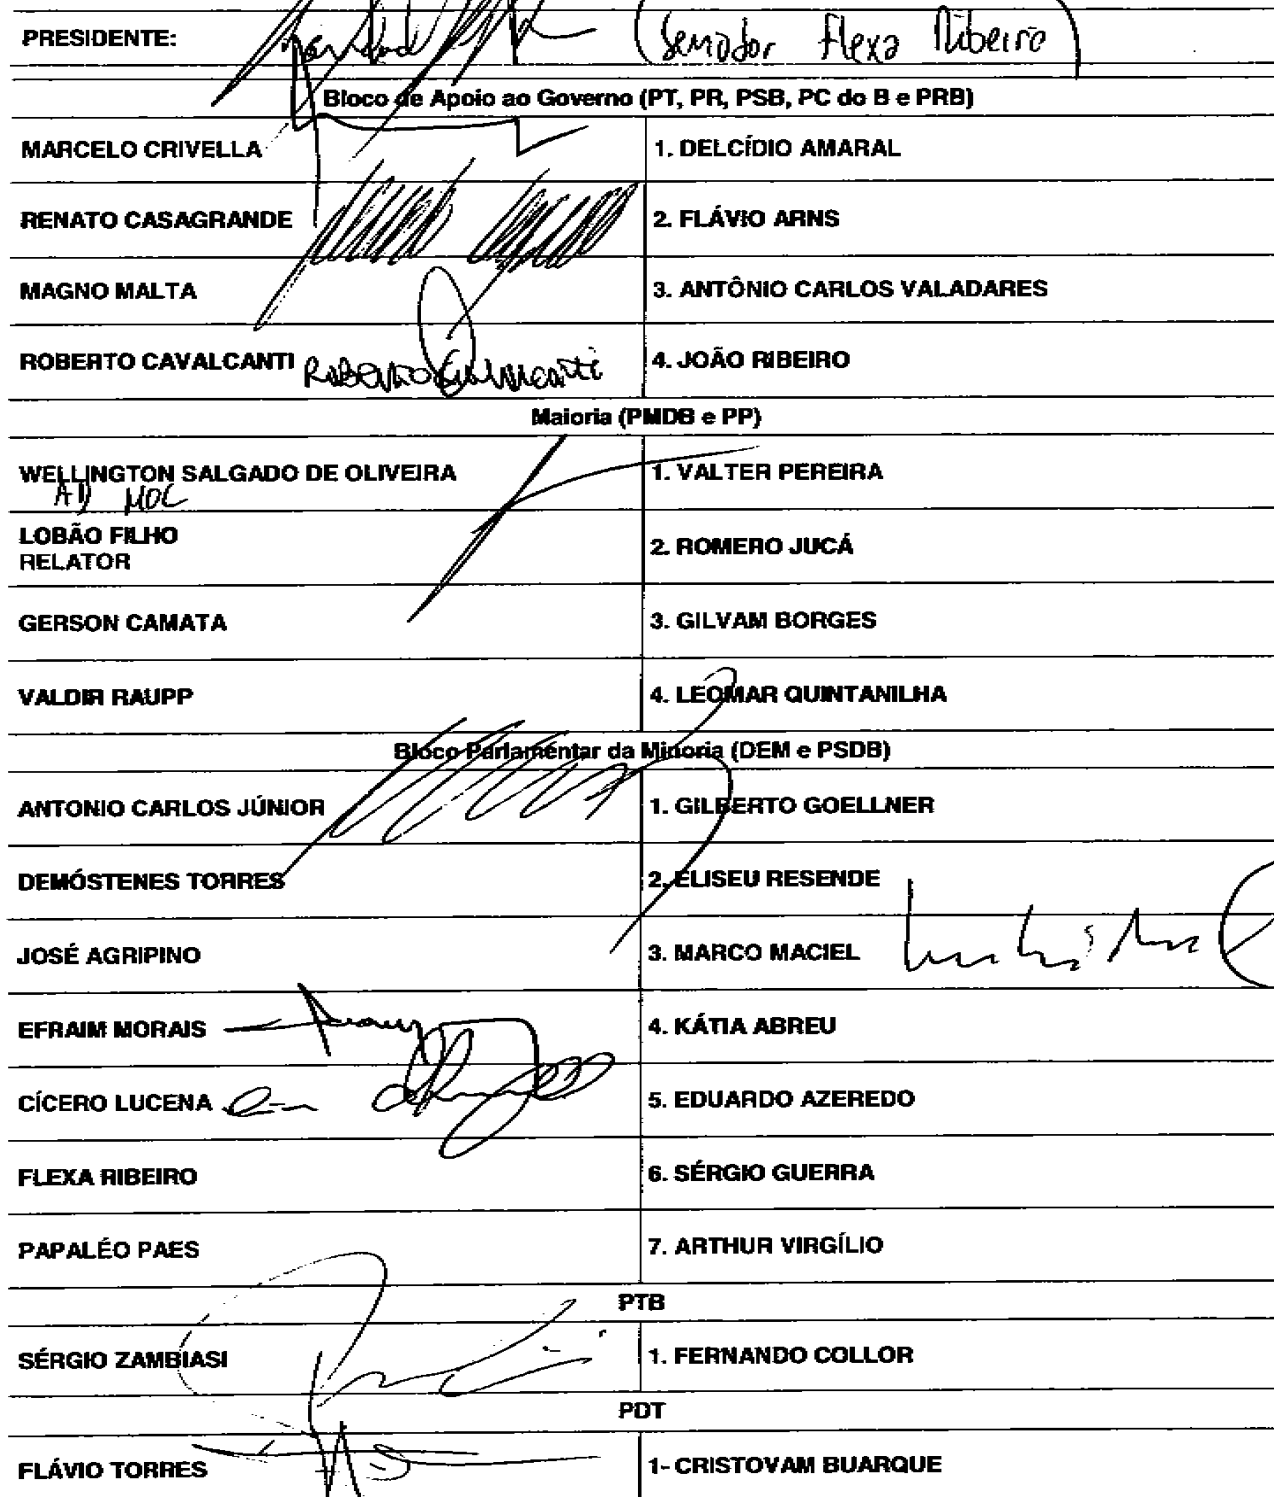 PRESIDENTE: (Senador Flexa Ribeiro)
Bloco de Apoio ao Governo (PT, PR, PSB, PC do B e PRB)
MARCELO CRIVELLA 1. DELCÍDIO AMARAL
RENATO CASAGRANDE 2. FLÁVIO ARNS
MAGNO MALTA 3. ANTÔNIO CARLOS VALADARES
ROBERTO CAVALCANTI Roberto Cavalcanti 4. JOÃO RIBEIRO
Maioria (PMDB e PP)
WELLINGTON SALGADO DE OLIVEIRA 1. VALTER PEREIRA
AD HOC
LOBÃO FILHO 2. ROMERO JUCÁ
RELATOR
GERSON CAMATA 3. GILVAM BORGES
VALDIR RAUPP 4. LEOMAR QUINTANILHA
Bloco Parlamentar da Minoria (DEM e PSDB)
ANTONIO CARLOS JÚNIOR 1. GILBERTO GOELLNER
DEMÓSTENES TORRES 2. ELISEU RESENDE
JOSÉ AGRIPINO 3. MARCO MACIEL
EFRAIM MORAIS 4. KÁTIA ABREU
CÍCERO LUCENA 5. EDUARDO AZEREDO
FLEXA RIBEIRO 6. SÉRGIO GUERRA
PAPALÉO PAES 7. ARTHUR VIRGÍLIO
PTB
SÉRGIO ZAMBIASI 1. FERNANDO COLLOR
PDT
FLÁVIO TORRES 1- CRISTOVAM BUARQUE